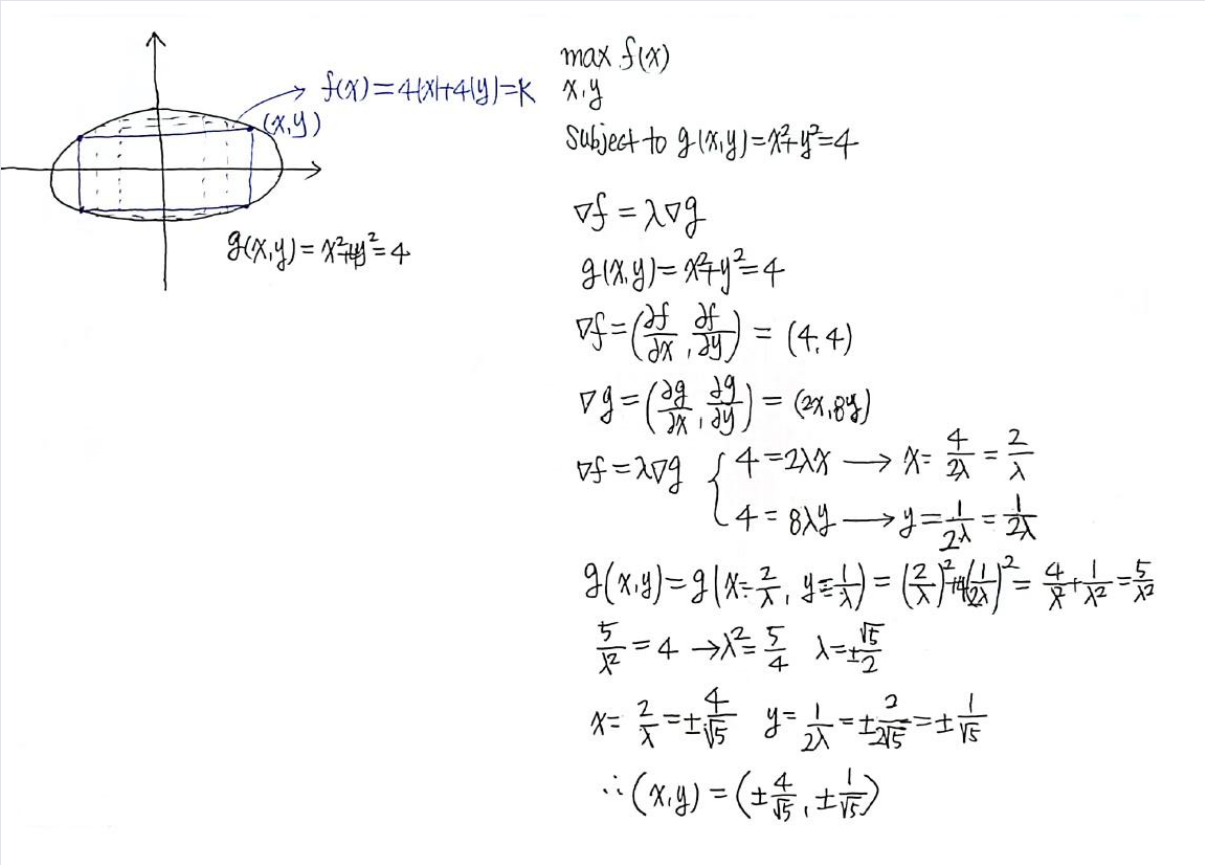 f(x)=4|x|+4|y|=K
(x,y)
g(x,y)=x²+4y²=4
max f(x)
x,y
Subject to g(x,y)=x²+y²=4
∇f=λ∇g
g(x,y)=x²+y²=4
∇f=(∂f/∂x, ∂f/∂y) = (4,4)
∇g=(∂g/∂x, ∂g/∂y) = (2x,8y)
∇f=λ∇g { 4=2λx → x=4/2λ=2/λ
4=8λy → y=1/2λ=1/2λ
g(x,y)=g(x=2/λ, y=1/λ)=(2/λ)²+4(1/2λ)²=4/λ²+1/λ²=5/λ²
5/λ²=4 →λ²=5/4 λ=±√5/2
x=2/λ=±4/√5 y=1/2λ=±2/2√5=±1/√5
∴(x,y)=(±4/√5, ±1/√5)